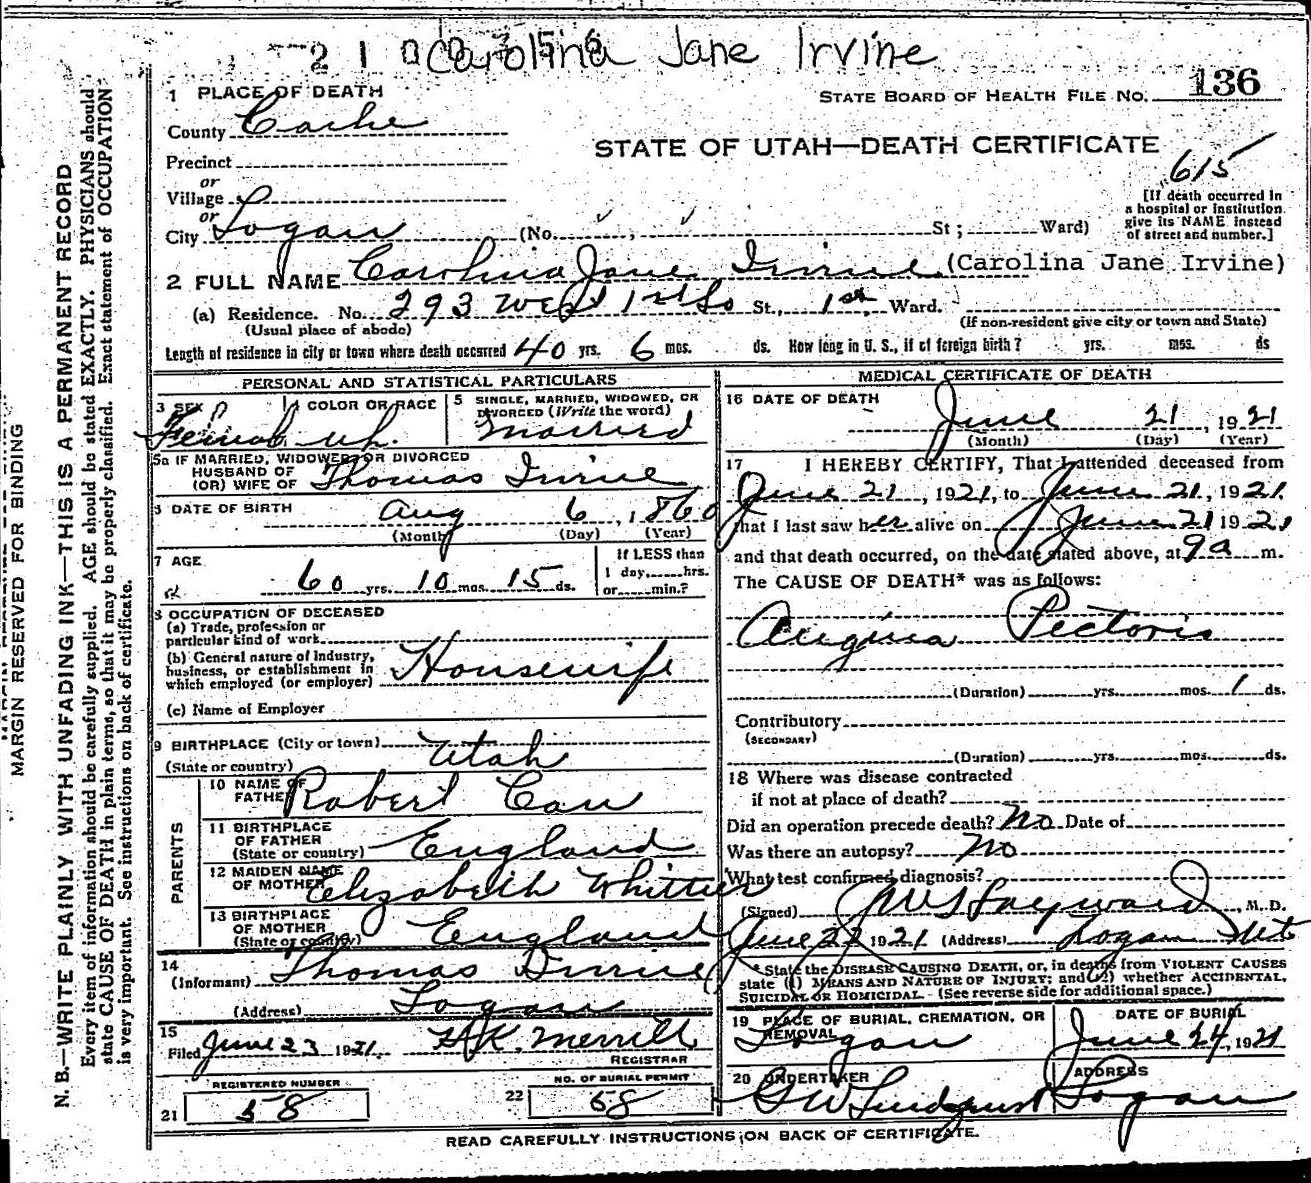 Carolina Jane Irvine
1 PLACE OF DEATH
STATE BOARD OF HEALTH FILE NO. 136
County Cache
STATE OF UTAH—DEATH CERTIFICATE
Precinct
615
or
Village
[If death occurred in
a hospital or institution
give its NAME instead
of street and number.]
or
City Logan (No. St; Ward)
2 FULL NAME Carolina Jane Irvine (Carolina Jane Irvine)
(a) Residence. No. 293 West 1st So St., 1st Ward.
(Usual place of abode) (If non-resident give city or town and State)
Length of residence in city or town where death occurred 40 yrs. 6 mos. ds. How long in U. S., if of foreign birth? yrs. mos. ds
PERSONAL AND STATISTICAL PARTICULARS
3 SEX
4 COLOR OR RACE
5 SINGLE, MARRIED, WIDOWED, OR
DIVORCED (Write the word)
Female wh. married
5a IF MARRIED, WIDOWED OR DIVORCED
HUSBAND OF
(OR) WIFE OF Thomas Irvine
6 DATE OF BIRTH Aug 6, 1860
(Month) (Day) (Year)
7 AGE
60 yrs. 10 mos. 15 ds.
If LESS than
1 day, hrs.
or min.?
8 OCCUPATION OF DECEASED
(a) Trade, profession or
particular kind of work
(b) General nature of Industry,
business, or establishment in
which employed (or employer) Housewife
(c) Name of Employer
9 BIRTHPLACE (City or town)
(State or country) Utah
PARENTS
10 NAME OF
FATHER Robert
11 BIRTHPLACE
OF FATHER
(State or country) England
12 MAIDEN NAME
OF MOTHER Elizabeth Whittier
13 BIRTHPLACE
OF MOTHER
(State or country) England
14
(Informant) Thomas Irvine
(Address) Logan
15
Filed June 23 1921. H.K. Merrill
REGISTRAR
REGISTERED NUMBER
21 58
NO. OF BURIAL PERMIT
22 58
MEDICAL CERTIFICATE OF DEATH
16 DATE OF DEATH
June 21, 1921
(Month) (Day) (Year)
17 I HEREBY CERTIFY, That I attended deceased from
June 21, 1921, to June 21, 1921
that I last saw her alive on June 21 1921
and that death occurred, on the date stated above, at 9 a m.
The CAUSE OF DEATH* was as follows:
Angina Pectoris
(Duration) yrs. mos. 1 ds.
Contributory
(SECONDARY)
(Duration) yrs. mos. ds.
18 Where was disease contracted
if not at place of death?
Did an operation precede death? No Date of
Was there an autopsy? No
What test confirmed diagnosis?
(Signed) Hayward, M. D.
June 22 1921 (Address) Logan Ut
* State the DISEASE CAUSING DEATH, or, in deaths from VIOLENT CAUSES
state (1) MEANS AND NATURE OF INJURY; and (2) whether ACCIDENTAL,
SUICIDAL OR HOMICIDAL. (See reverse side for additional space.)
19 PLACE OF BURIAL, CREMATION, OR
REMOVAL
Logan
DATE OF BURIAL
June 24, 1921
20 UNDERTAKER
G W Lindquist
ADDRESS
Logan
READ CAREFULLY INSTRUCTIONS ON BACK OF CERTIFICATE.
MARGIN RESERVED FOR BINDING
N. B.—WRITE PLAINLY WITH UNFADING INK—THIS IS A PERMANENT RECORD
Every item of information should be carefully supplied. AGE should be stated EXACTLY. PHYSICIANS should
state CAUSE OF DEATH in plain terms, so that it may be properly classified. Exact statement of OCCUPATION
is very important. See instructions on back of certificate.